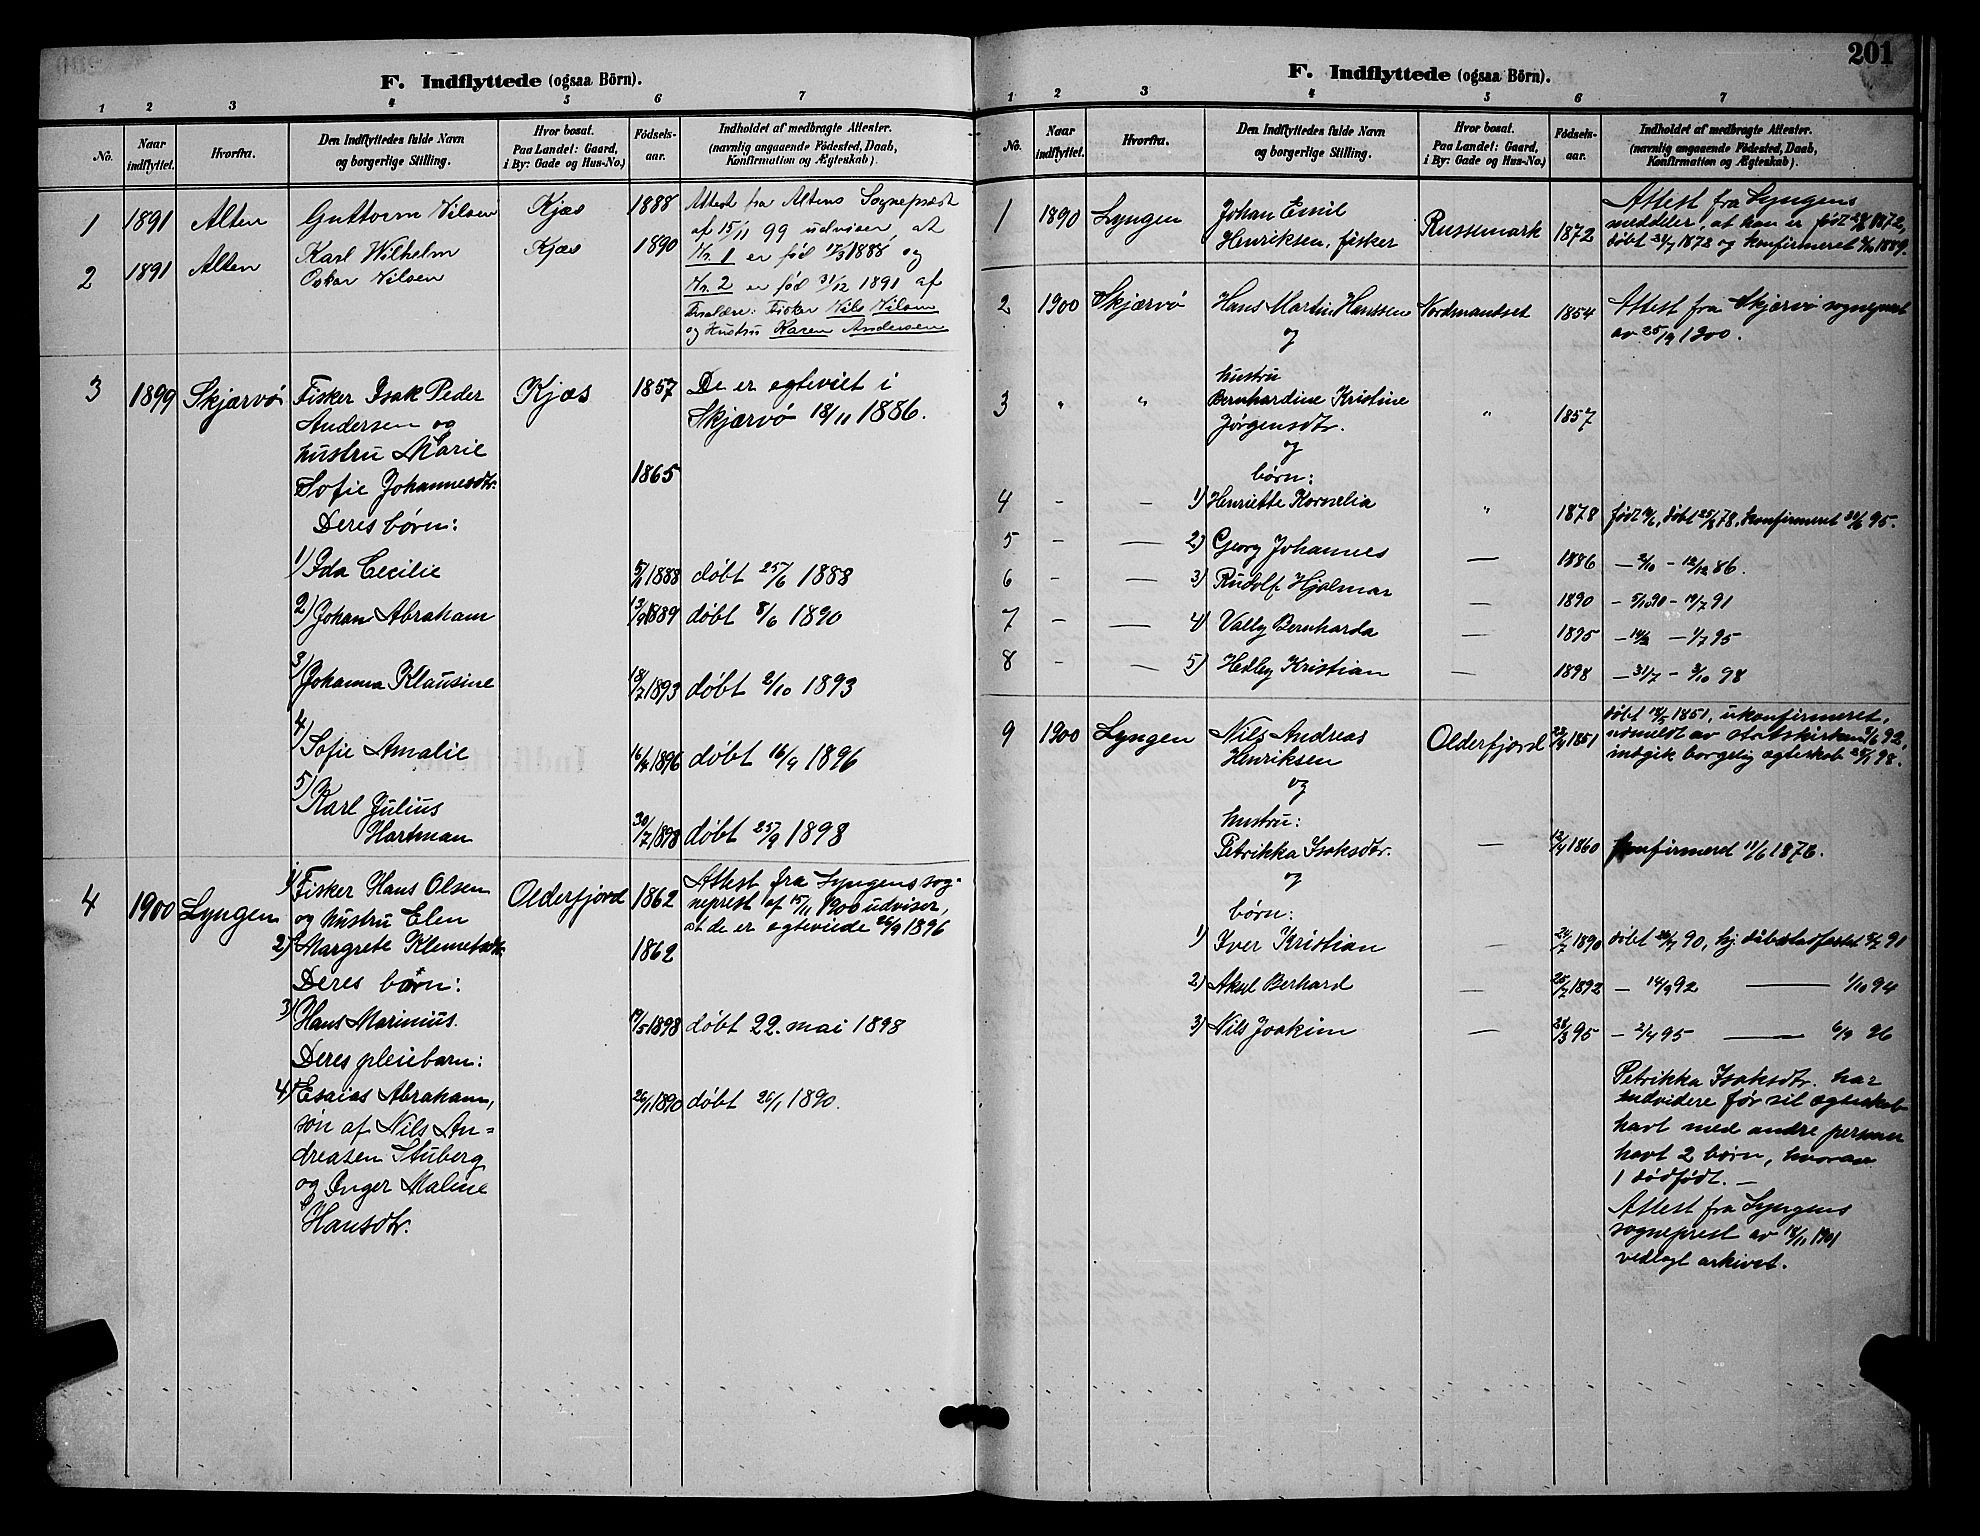 F. Indflyttede (ogsaa Börn).
1 2 3 4 5 6 7
No. Naar indflyttet. Hvorfra. Den Indflyttedes fulde Navn og borgerlige Stilling. Hvor bosat. Paa Landet: Gaard, i By: Gade og Hus-No.) Födsels-aar. Indholdet af medbragte Attester. (navnlig angaaende Födested, Daab, Konfirmation og Ægteskab).
1 1891 Alten Guttorm Nilsen Kjæs 1888 Attest fra Altens Sognepræst
af 15/11 99 udviser, at
2 1891 Alten Karl Wilhelm Kjæs 1890 Nr. 1 er fød 17/3 1888 og
Oskar Nilsen Nr. 2 er fød 31/12 1891 af
Forældre: Fisker Nils Nilsen
og Hustru Karen Andersen
3 1899 Skjærvø Fisker Isak Peder Kjæs 1857 De er egteviet i
Andersen og Skjærvø 18/11 1886.
hustru Marie
Sofie Johannesdtr. 1865
Deres børn:
1) Ida Cecilie 5/6 1888 døbt 25/6 1888
2) Johan Abraham 13/9 1889 døbt 8/6 1890
3) Johanna Klausine 18/7 1893 døbt 2/10 1893
4) Sofie Amalie 16/4 1896 døbt 16/9 1896
5) Karl Julius
Hartman 30/7 1898 døbt 25/9 1898
4 1900 Lyngen 1) Fisker Hans Olsen Olderfjord 1862 Attest fra Lyngens sog-
og hustru Elen neprest af 15/11 1900 udviser,
2) Margrete Klemetsdtr. 1862 at de er egteviede 26/9 1896
Deres børn:
3) Hans Marinius. 19/5 1898 døbt 22. mai 1898
Deres pleiebarn:
4) Esaias Abraham, 26/1 1890 døbt 26/1 1890.
søn af Nils An=
dreasen Stuberg
og Inger Maline
Hansdtr.
201
F. Indflyttede (ogsaa Börn).
1 2 3 4 5 6 7
No. Naar indflyttet. Hvorfra. Den Indflyttedes fulde Navn og borgerlige Stilling. Hvor bosat. Paa Landet: Gaard, i By: Gade og Hus-No.) Födsels-aar. Indholdet af medbragte Attester. (navnlig angaaende Födested, Daab, Konfirmation og Ægteskab).
1 1890 Lyngen Johan Emil Russemark 1872 Attest fra Lyngens
Henriksen, fisker meddeler, at han er født 1872,
døbt 1873 og konfirmeret 1889.
2 1900 Skjærvø Hans Martin Hanssen Nordmandset 1854 Attest fra Skjærvø sogneprest
og av 25/9 1900.
hustru
3 " " Bernhardine Kristine " 1857
Jørgensdtr.
og
børn:
4 - - 1) Henriette Kornelia " 1878 født, døbt 25/8 78, konfirmeret 95.
5 - — 2) Georg Johannes — 1886 — 2/10 - 12/12 86.
6 - — 3) Rudolf Hjalmar — 1890 - 5/10 90 - 19/7 91
7 - — 4) Vally Bernharda — 1895 — 14/3 — 1/7 95
8 - — 5) Hedley Kristian — 1898 — 31/7 - 3/10 98
9 1900 Lyngen Nils Andreas Olderfjord 23/4 1851 døbt 18/5 1851, ukonfirmeret,
Henriksen utmeldt av statskirken 92,
og indgik borgelig egteskab 98.
hustru:
Petrikka Isaksdtr. — 12/4 1860 konfirmeret 11/6 1876.
og
børn:
1) Iver Kristian — 24/7 1890 døbt 90, hj. dåbstadfæstet 91
2) Aksel Berhard — 25/7 1892 — 14/9 92 — 1/10 94
3) Nils Joakim — 28/3 95 — 2/4 95 — 6/9 96
Petrikka Isaksdtr. har
endvidere før sit egteskab
havt med andre person
havt 2 børn, hvorav
1 dødfødt. —
Attest fra Lyngens
sogneprest av 18/11 1901
vedlagt arkivet.